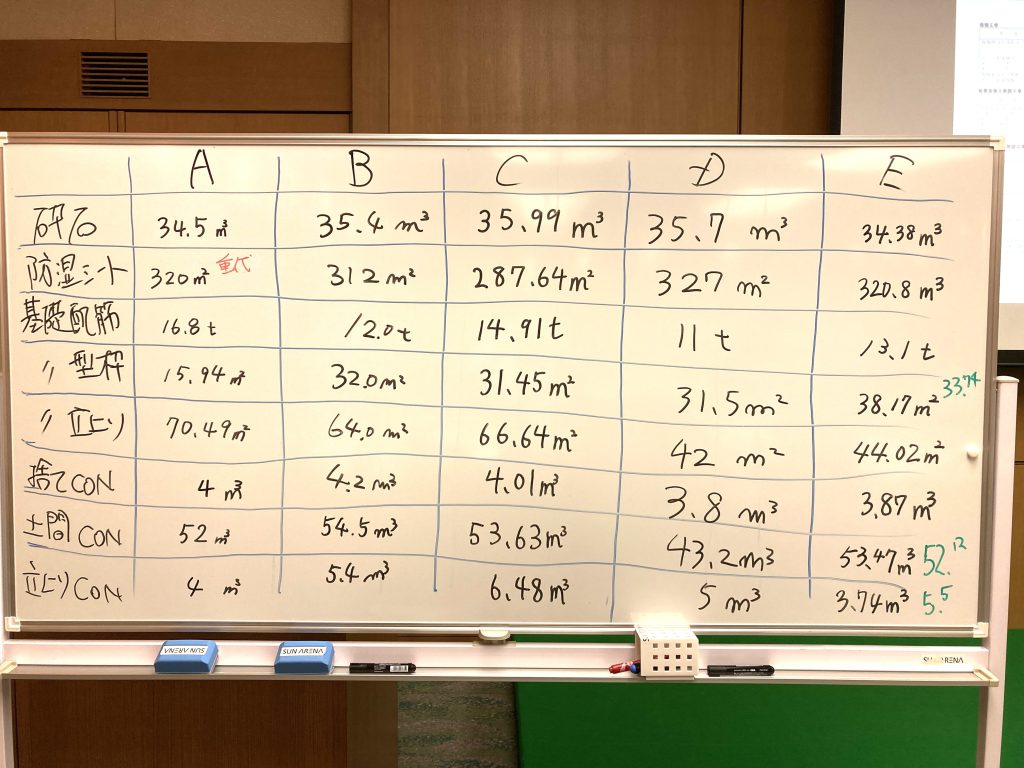 A B C D E
砕石 34.5 m³ 35.4 m³ 35.99 m³ 35.7 m³ 34.38 m³
防湿シート 320 m² 重代 312 m² 287.64 m² 327 m² 320.8 m³
基礎配筋 16.8 t 12.0 t 14.91 t 11 t 13.1 t
〃 型枠 15.94 m² 32.0 m² 31.45 m² 31.5 m² 38.17 m² 33.74
〃 立上り 70.49 m² 64.0 m² 66.64 m² 42 m² 44.02 m²
捨てCON 4 m³ 4.2 m³ 4.01 m³ 3.8 m³ 3.87 m³
土間CON 52 m³ 54.5 m³ 53.63 m³ 43.2 m³ 53.47 m³ 52.12
立上りCON 4 m³ 5.4 m³ 6.48 m³ 5 m³ 3.74 m³ 5.5
SUN ARENA
SUN ARENA
SUN ARENA